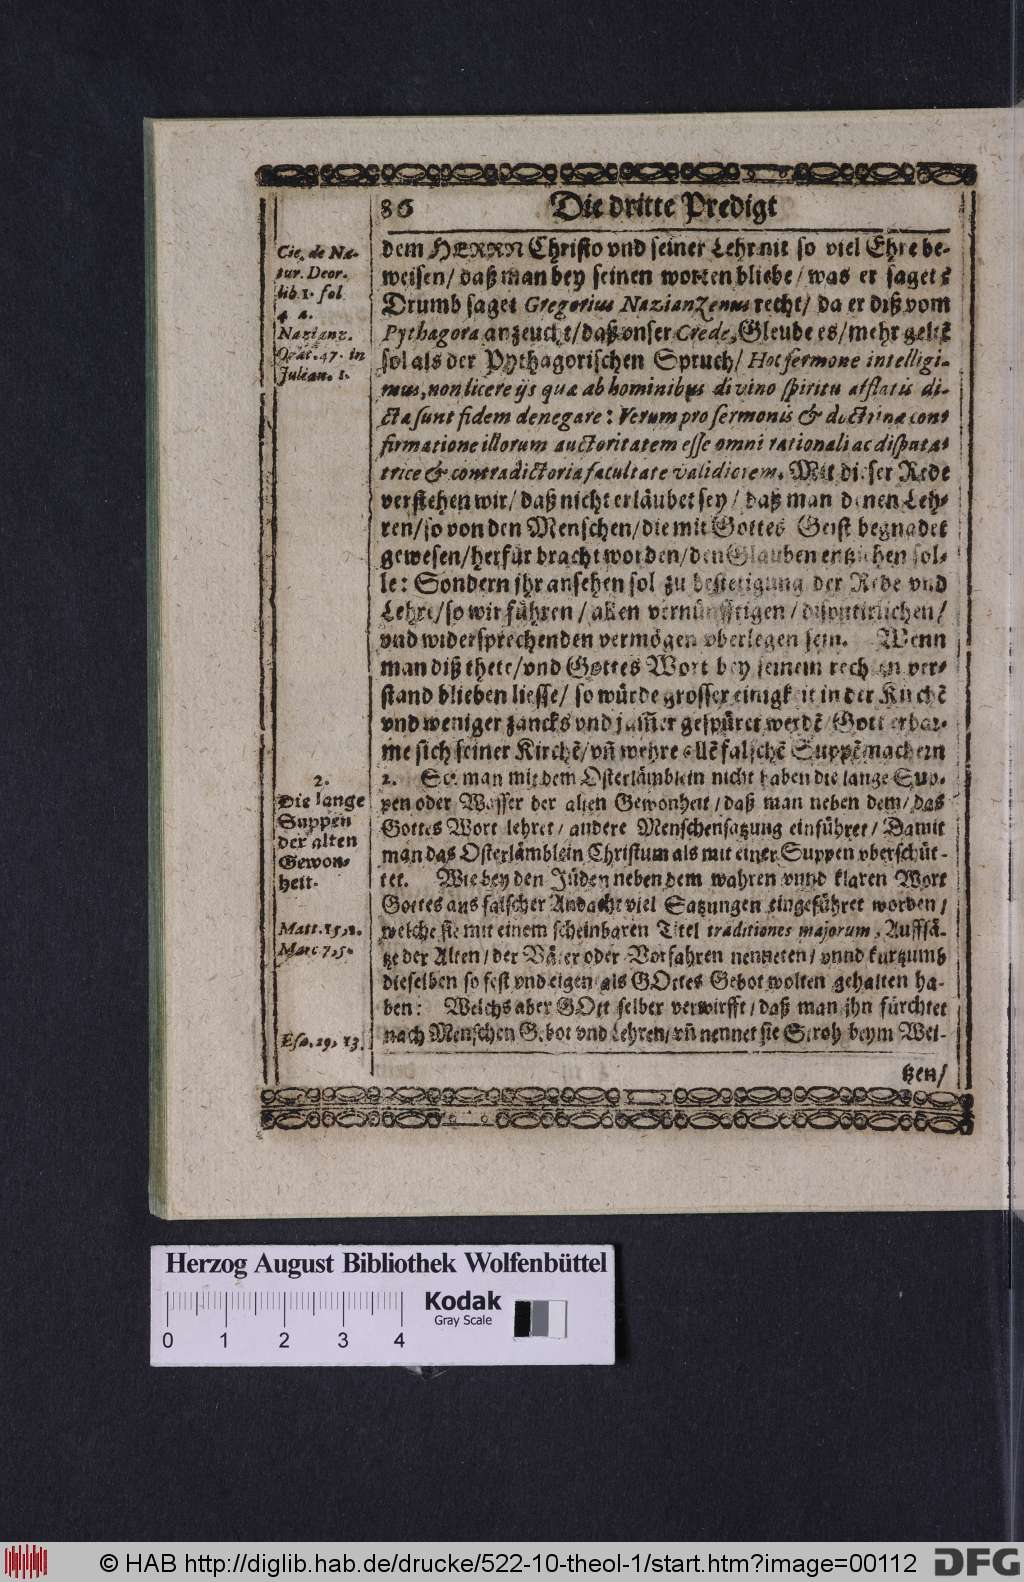 86 Die dritte Predigt
dem HERRN Christo vnd seiner Lehr mit so viel Ehre be-
weisen/ daß man bey seinen worten bliebe/ was er saget?
Drumb saget Gregorius Nazianzenus recht/ da er diß vom
Pythagora anzeucht/ daß vnser Crede, Gleube es/ mehr geltẽ
sol als der Pythagorischen Spruch/ Hoc sermone intelligi-
mus, non licere ijs quæ ab hominibus divino spiritu afflatis di-
cta sunt fidem denegare: Verum pro sermonis & doctrinæ con-
firmatione illorum auctoritatem esse omni rationali ac disputa-
trice & contradictoria facultate validiorem. Mit dieser Rede
verstehen wir/ daß nicht erläubet sey/ daß man denen Leh-
ren/ so von den Menschen/ die mit Gottes Geist begnadet
gewesen/ herfür bracht worden/ den Glauben entziehen sol-
le: Sondern jhr ansehen sol zu bestetigung der Rede vnd
Lehre/ so wir führen/ allen vernünfftigen/ disputirlichen/
vnd widersprechenden vermögen vberlegen sein. Wenn
man diß thete/ vnd Gottes Wort bey seinem rechten ver-
stand blieben liesse/ so würde grosser einigkeit in der Kirchẽ
vnd weniger zancks vnd jam̃er gespüret werdẽ/ Gott erbar-
me sich seiner Kirchẽ/ vñ wehre allẽ falschẽ Suppẽmachern
2. Sol man mit dem Osterlämblein nicht haben die lange Sup-
pen oder Wasser der alten Gewonheit/ daß man neben dem/ das
Gottes Wort lehret/ andere Menschensatzung einführet/ Damit
man das Osterlämblein Christum als mit einer Suppen vberschüt-
tet. Wie bey den Jüden neben dem wahren vnnd klaren Wort
Gottes aus falscher Andacht viel Satzungen eingeführet worden/
welche sie mit einem scheinbaren Titel traditiones majorum, Auffsä-
tze der Alten/ der Väter oder Vorfahren nenneten/ vnnd kurtzumb
dieselben so fest vnd eigen als GOttes Gebot wolten gehalten ha-
ben: Welchs aber GOtt selber verwirfft/ daß man jhn fürchtet
nach Menschen Gebot vnd Lehren/ vñ nennet sie Stroh beym Wei-
tzen/
Cic. de Na-
tur. Deor.
lib. 1. fol
4 a.
Nazianz.
Orat. 47. in
Julian. 1.
2.
Die lange
Suppen
der alten
Gewon-
heit.
Matt. 15, 2.
Marc 7, 5.
Esa. 29, 13.
Herzog August Bibliothek Wolfenbüttel
Kodak
Gray Scale
0 1 2 3 4
© HAB http://diglib.hab.de/drucke/522-10-theol-1/start.htm?image=00112
DFG